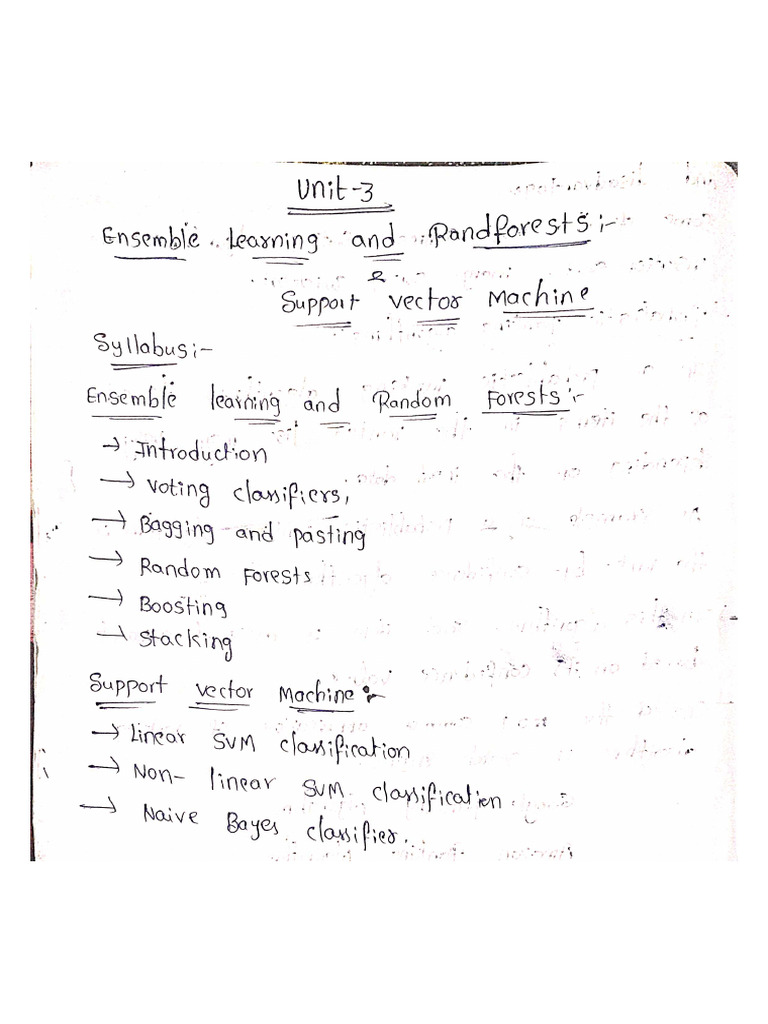 Unit-3
Ensemble learning and Randforests:-
&
Support vector Machine
Syllabus:-
Ensemble learning and Random Forests:-
→ Introduction
→ Voting classifiers,
→ Bagging and pasting
→ Random Forests
→ Boosting
→ Stacking
Support vector Machine:-
→ Linear SVM classification
→ Non-linear SVM classification
→ Naive Bayes classifier.